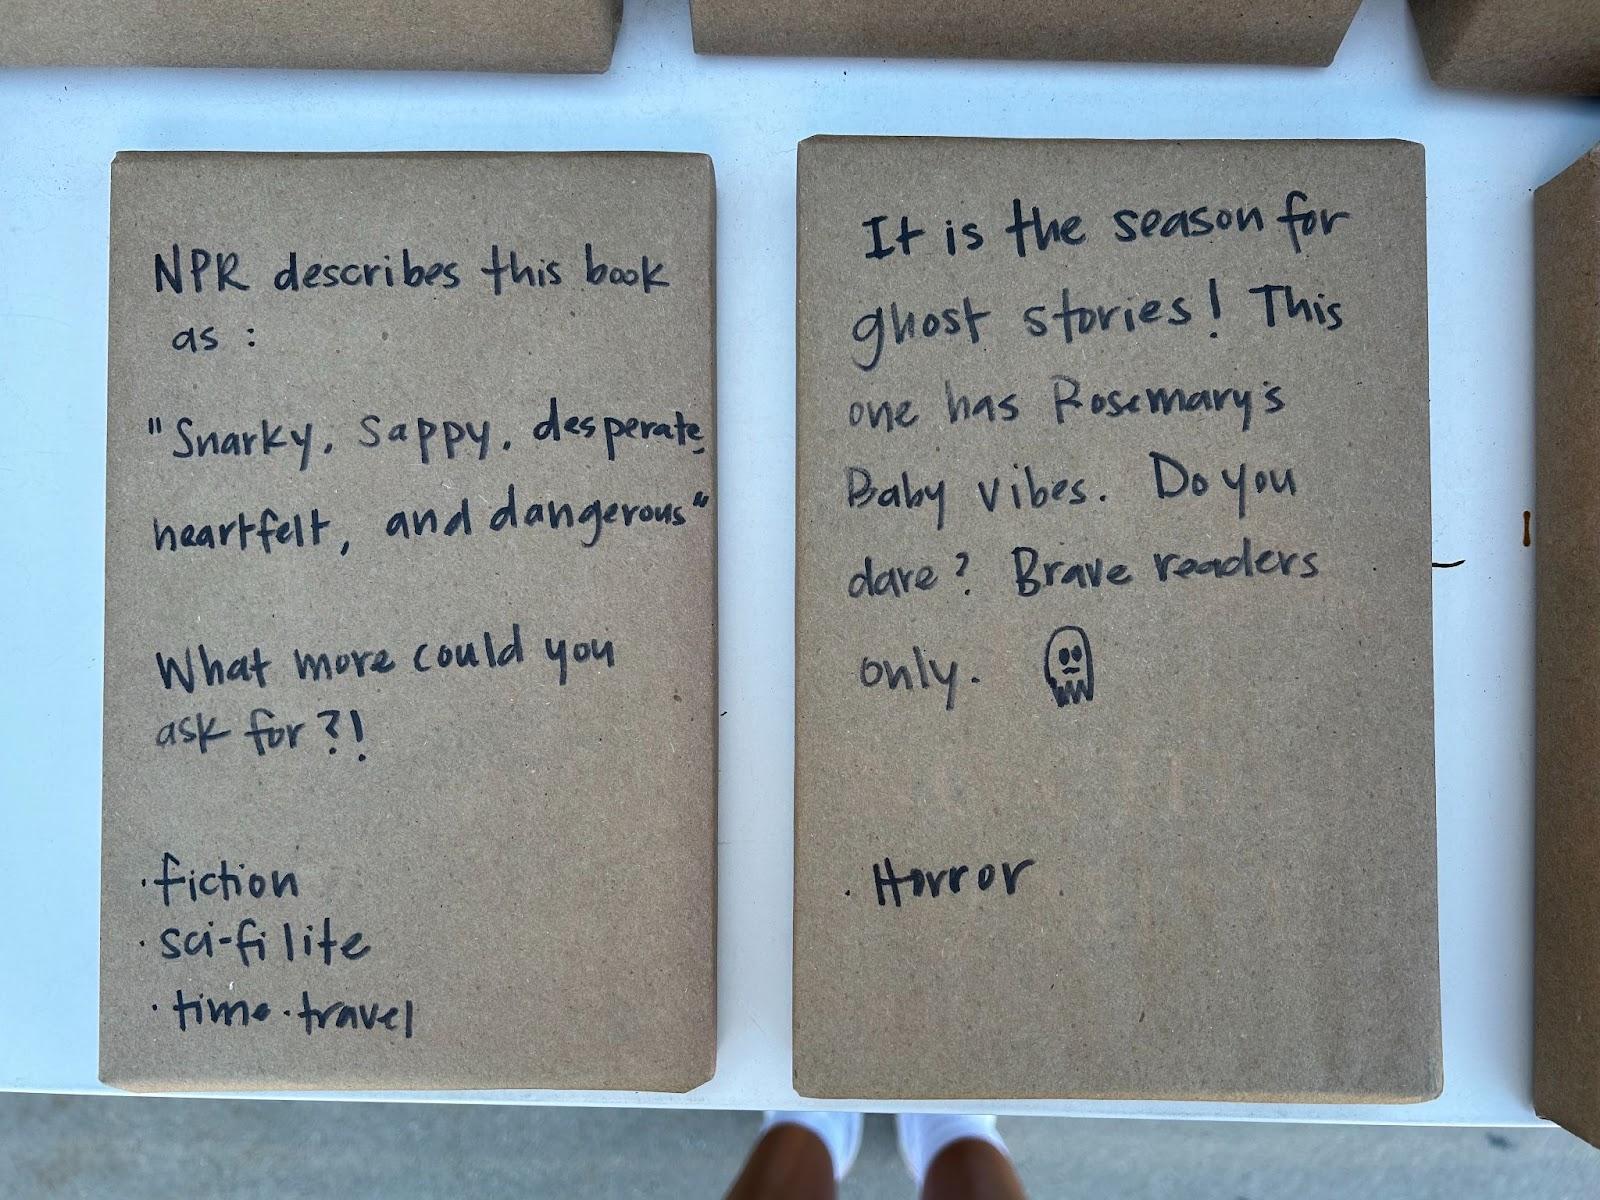 NPR describes this book
as :
"Snarky, sappy, desperate,
heartfelt, and dangerous"
What more could you
ask for?!
· fiction
· sci-fi lite
· time · travel
It is the season for
ghost stories! This
one has Rosemary's
Baby vibes. Do you
dare? Brave readers
only.
· Horror